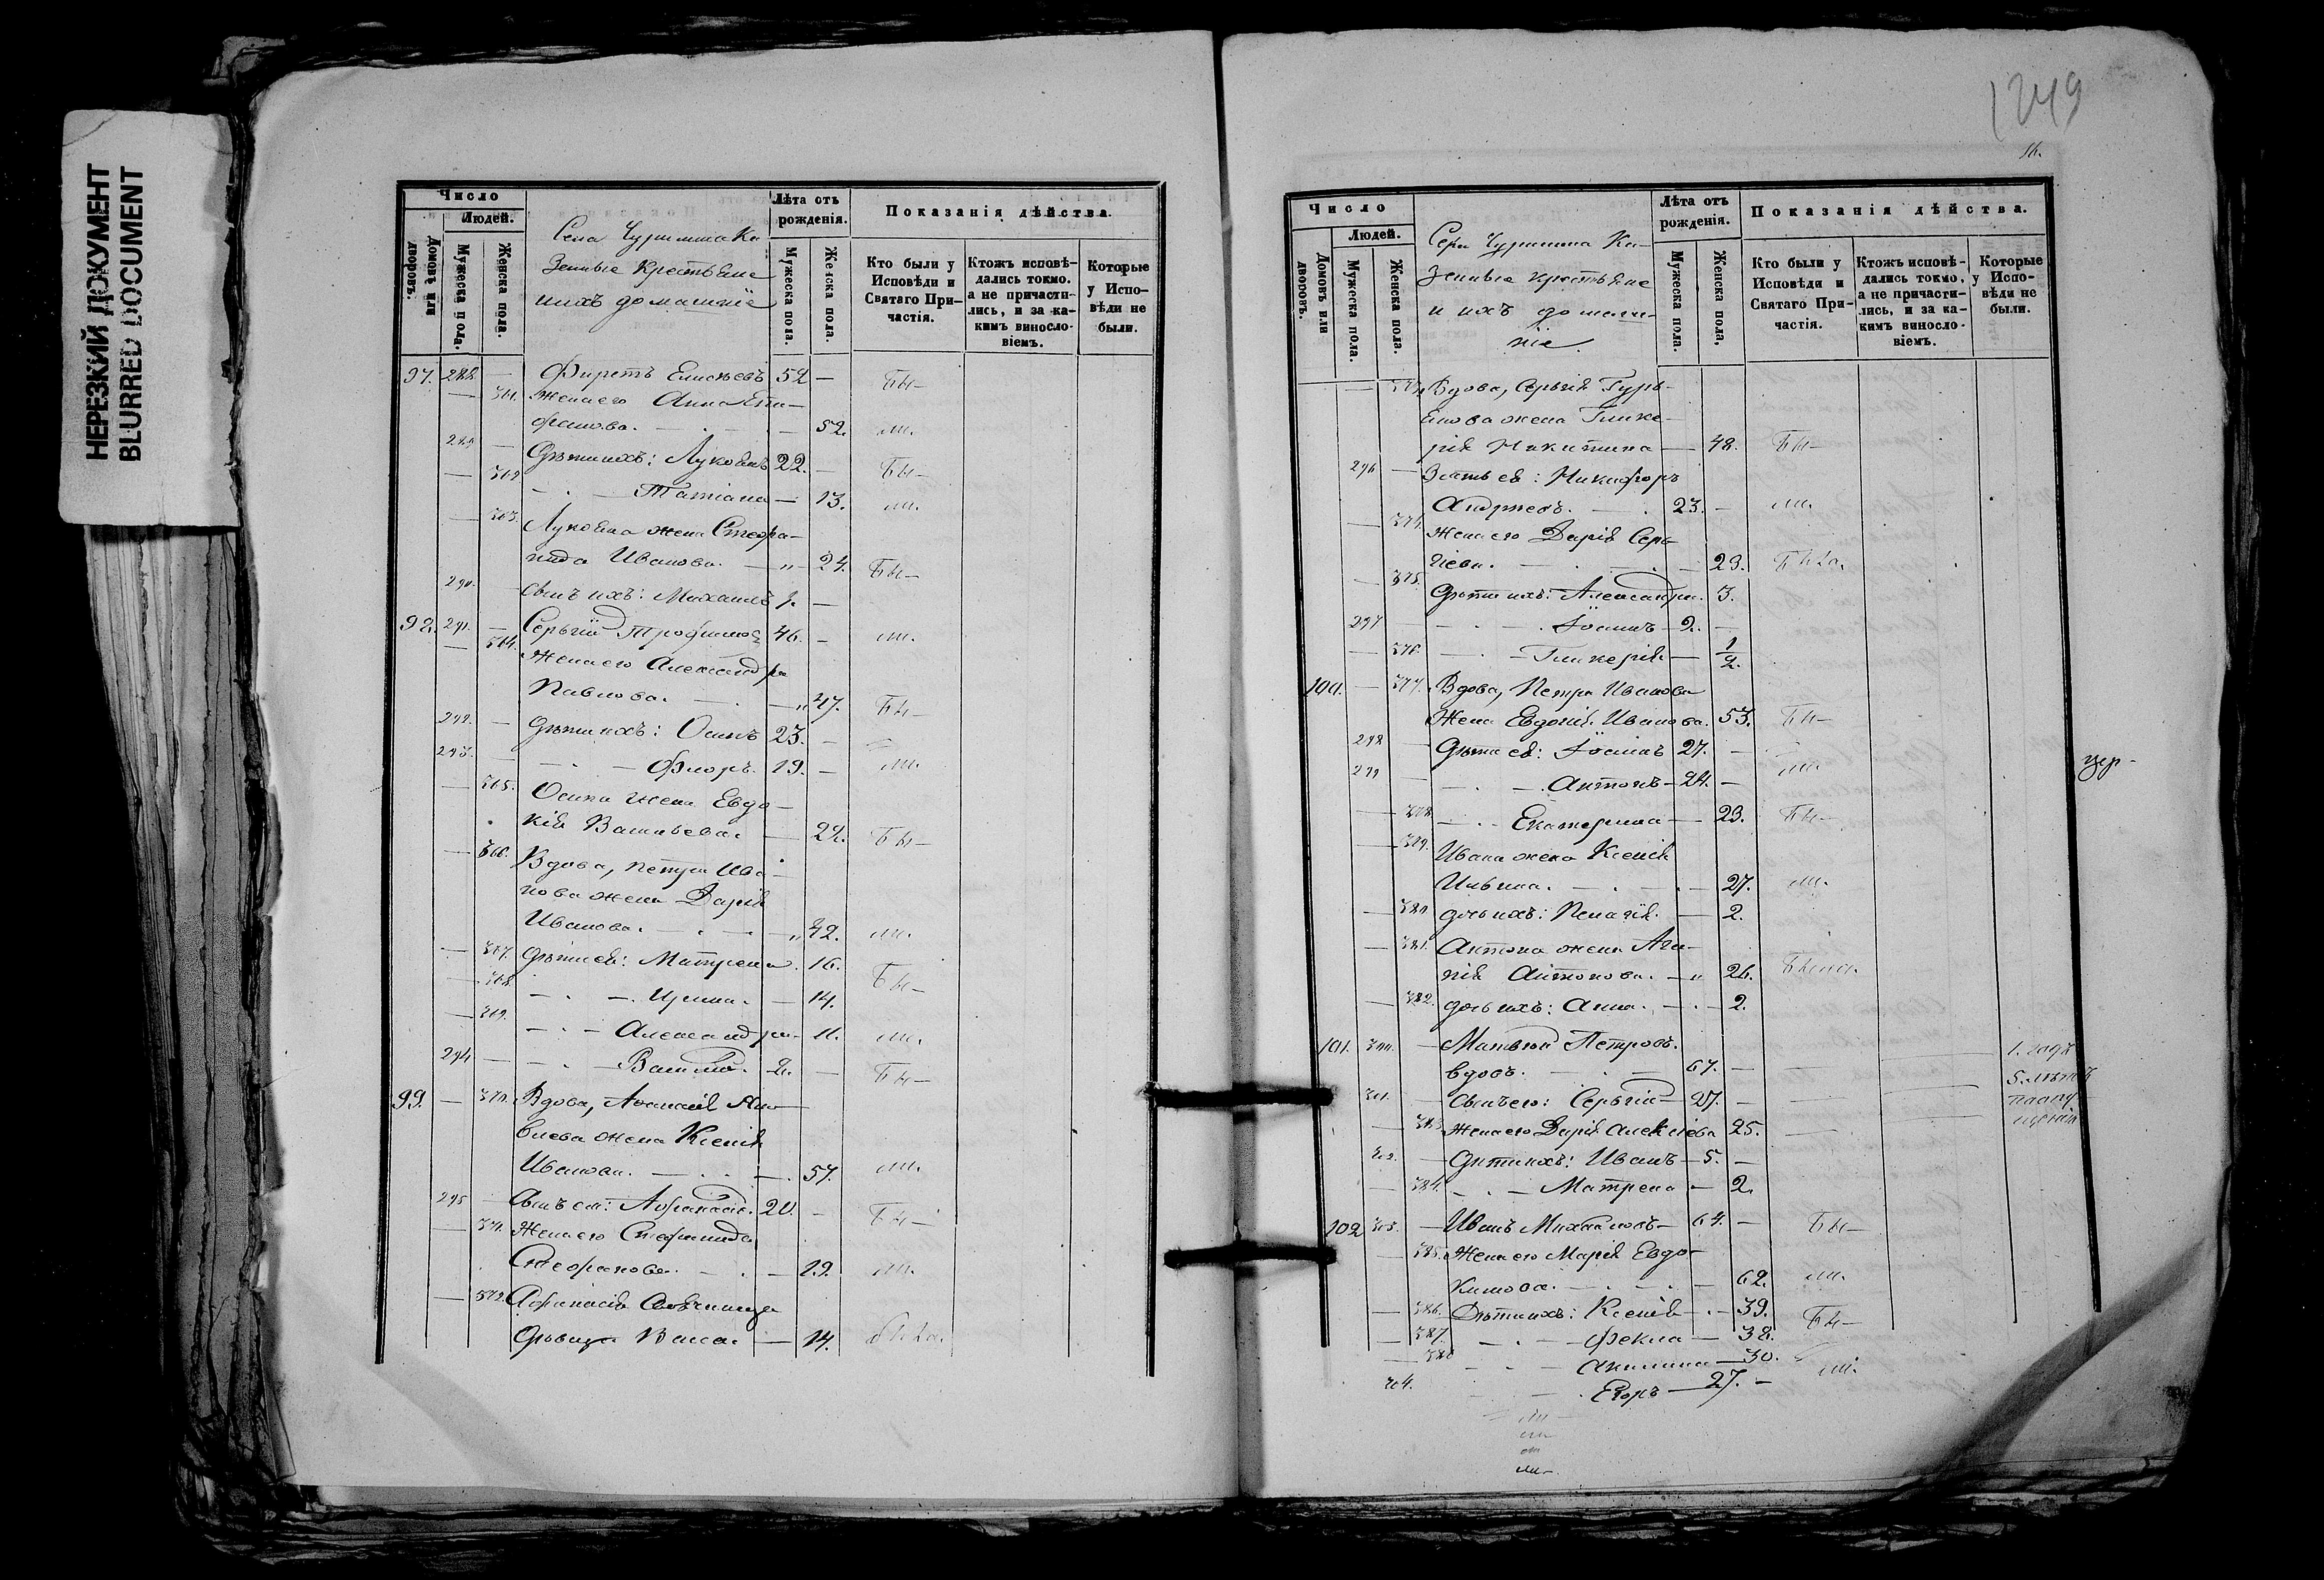 НЕРЕЗКИЙ ДОКУМЕНТ
BLURRED DOCUMENT
Число
Людей.
Домовъ или дворовъ.
Мужеска пола.
Женска пола.
Села Ка
зенные крестьяне
и ихъ домашніе
Лѣта отъ рожденія.
Мужеска пола.
Женска пола
Показанія дѣйства.
Кто были у Исповѣди и Святаго Причастія.
Ктожъ исповѣдались токмо, а не причастились, и за какимъ винословіемъ.
Которые у Исповѣди не были.
97. 288 — Фирстъ Елисѣевъ 52 — Бы—
— 361. Жена его Анна Епи—
фанова. — 52. ли.
289 — Дѣти ихъ: Лукоянъ 22. — Бы—
— 362 — Татіана — 13. ли.
— 363. Лукояна жена Стефа—
нида Иванова. — 24. Бы—
290. Сынъ ихъ: Михаилъ —
98. 291. — Сергій Трофимовъ 46. — ли.
— 364. Жена его Александра
Павлова. — 47. Бы—
292. — Дѣти ихъ: Осипъ 23. —
293. — Флоръ. 19. — ли.
— 365. Осипа жена Евдо—
кія Васильева. — 24. Бы—
— 366. Вдова, Петра Ива—
нова жена Дарія
Иванова. — 42. ли.
— 367. Дѣти ея: Матрена. 16. Бы—
— 368 — Ирина. — 14.
— 369. — Александра. 11. ли.
294 — Василій. 2. — Бы—
99. — 370. Вдова,
жена Ксенія
Иванова. — 57. ли.
295 — Сынъ ея: Афанасій. 20. — Бы—
— 371. Жена его Стефанида
Стефанова. — 19. ли.
— 372. Афанасія
Дѣвица Васса. — 14.
1249
16.
Число
Людей.
Домовъ или дворовъ.
Мужеска пола.
Женска пола.
Села Ка—
зенные крестьяне
и ихъ домаш—
ніе.
Лѣта отъ рожденія.
Мужеска пола.
Женска пола,
Показанія дѣйства.
Кто были у Исповѣди и Святаго Причастія.
Ктожъ исповѣдались токмо, а не причастились, и за какимъ винословіемъ.
Которые у Исповѣди не были.
— 373 Вдова, Сергія Гурь—
янова жена Глике—
рія Никитина — 48. Бы—
296 — Зять ея: Никифоръ
Андреевъ. 23. — ли.
— 374. Жена его Дарія Сер—
гіева. — 23.
— 375. Дѣти ихъ: Александра. 3.
297 — Іоаннъ — 2. —
— 376. — Гликерія — 1/2.
100. — 377. Вдова, Петра Иванова
жена Евдокія Иванова. 53. Бы—
298 — Дѣти ея: Іоаннъ 27. —
299 — Антонъ — 24. — ли.
— 378 — Екатерина — 23. Бы—
— 379. Ивана жена Ксенія
Ильина. — 27. ли.
— 380 дочь ихъ: Пелагія. — 2.
— 381. Антона жена Ага—
пія Антонова. — 26.
— 382. дочь ихъ: Анна. — 2.
101. 300. — Матвѣй Петровъ.
вдовъ. — 67. —
301. — Сынъ его: Сергій — 27. —
— 383 жена его Дарія Алексіева 25.
302. — Дѣти ихъ: Иванъ — 5. —
— 384. — Матрена — 2.
1. годъ
5. лѣтъ
102 303. — Иванъ Михайловъ — 64. — Бы—
— 385. Жена его Марія Евдо—
кимова. — 62. ли.
— 386. Дѣти ихъ: Ксенія — 39. Бы—
— 387. — Фекла — 38.
— 388 — Акилина — 30. ли.
304. — Егоръ — 27. —
цер—
ли—
ли
ли
ли—